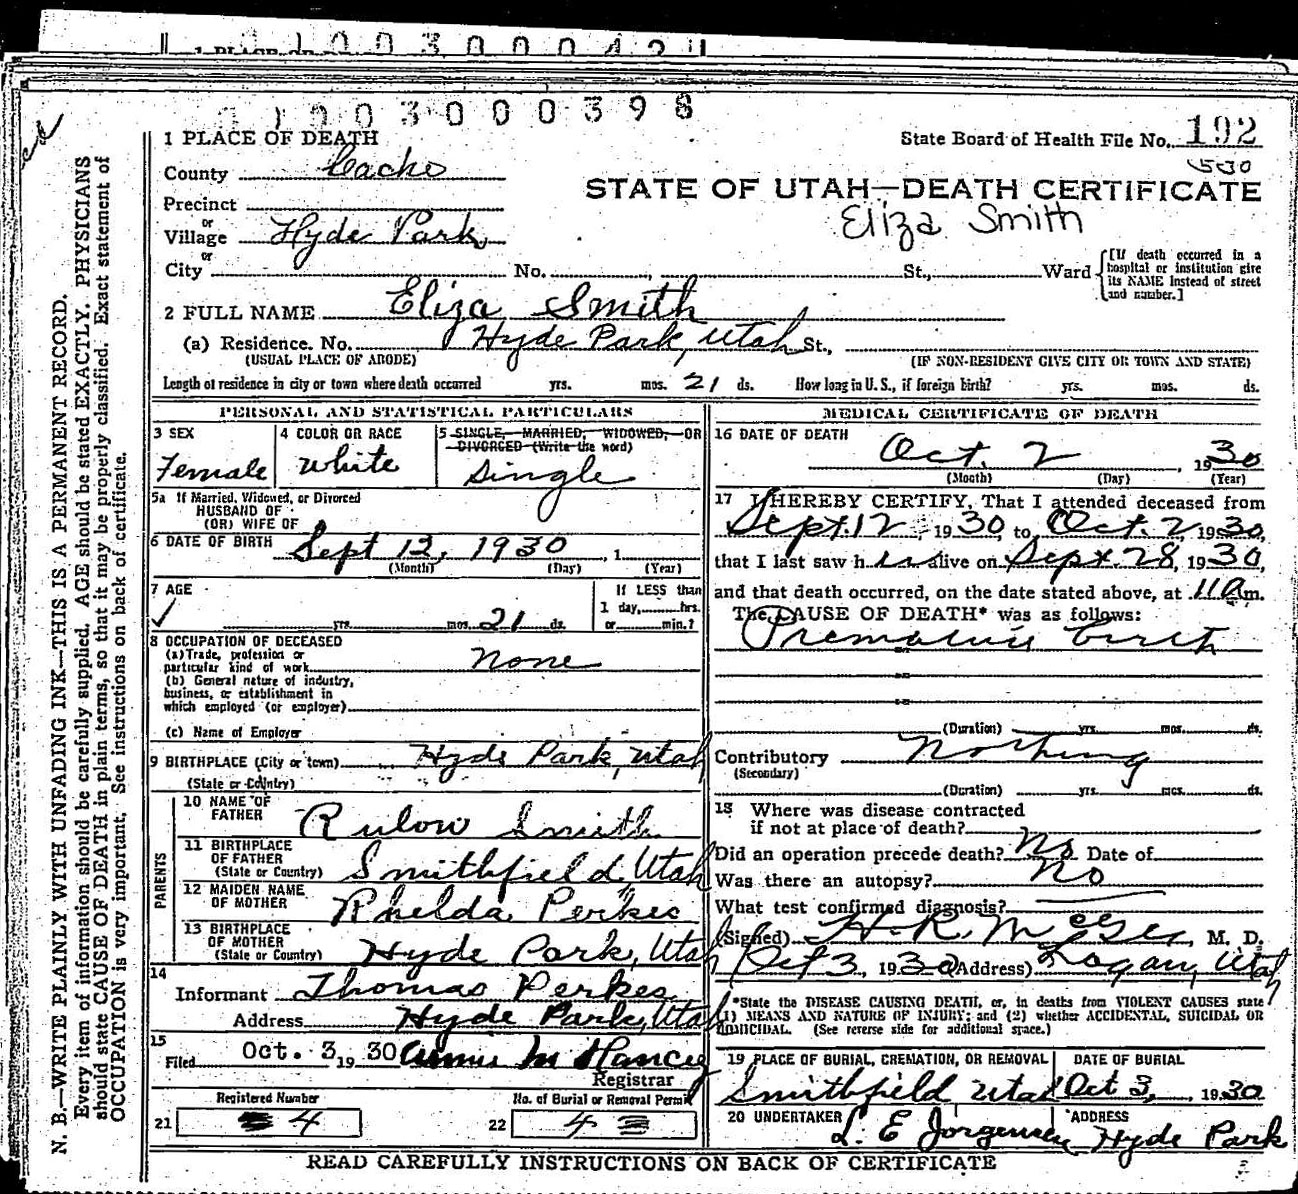 1 1 0 0 3 0 0 0 4 2 1
1 PLACE OF
1 1 0 0 3 0 0 0 3 9 8
1 PLACE OF DEATH
State Board of Health File No. 192
530
County Cache
STATE OF UTAH—DEATH CERTIFICATE
Eliza Smith
Precinct
or
Village Hyde Park
or
City No. , St., Ward
[If death occurred in a hospital or institution give its NAME instead of street and number.]
2 FULL NAME Eliza Smith
(a) Residence. No. Hyde Park, Utah St.,
(USUAL PLACE OF ABODE) (IF NON-RESIDENT GIVE CITY OR TOWN AND STATE)
Length of residence in city or town where death occurred yrs. mos. 21 ds. How long in U. S., if foreign birth? yrs. mos. ds.
PERSONAL AND STATISTICAL PARTICULARS
3 SEX
Female
4 COLOR OR RACE
White
5 SINGLE, MARRIED, WIDOWED, OR
DIVORCED (Write the word)
Single
5a If Married, Widowed, or Divorced
HUSBAND OF
(OR) WIFE OF
6 DATE OF BIRTH Sept 12, 1930 , 1
(Month) (Day) (Year)
7 AGE
yrs. mos. 21 ds.
If LESS than
1 day, hrs.
or min.?
8 OCCUPATION OF DECEASED
(a) Trade, profession or
particular kind of work None
(b) General nature of industry,
business, or establishment in
which employed (or employer)
(c) Name of Employer
9 BIRTHPLACE (City or town) Hyde Park, Utah
(State or Country)
PARENTS
10 NAME OF
FATHER Rulow Smith
11 BIRTHPLACE
OF FATHER
(State or Country) Smithfield, Utah
12 MAIDEN NAME
OF MOTHER Rhelda Perkes
13 BIRTHPLACE
OF MOTHER
(State or Country) Hyde Park, Utah
14
Informant Thomas Perkes
Address Hyde Park, Utah
15
Filed Oct. 3, 19 30
Registrar
Registered Number
21 4
No. of Burial or Removal Permit
22 4
MEDICAL CERTIFICATE OF DEATH
16 DATE OF DEATH
Oct. 2 , 1930
(Month) (Day) (Year)
17 I HEREBY CERTIFY, That I attended deceased from
Sept. 12, 1930, to Oct. 2, 1930,
that I last saw her alive on Sept. 28, 1930,
and that death occurred, on the date stated above, at 11 a m.
The CAUSE OF DEATH* was as follows:
Premature birth
(Duration) yrs. mos. ds.
Contributory Nothing
(Secondary)
(Duration) yrs. mos. ds.
18 Where was disease contracted
if not at place of death?
Did an operation precede death? No Date of
Was there an autopsy? No
What test confirmed diagnosis?
(Signed) H. R. McGee, M. D.
Oct 3, 1930 (Address) Logan, Utah
*State the DISEASE CAUSING DEATH, or, in deaths from VIOLENT CAUSES state
(1) MEANS AND NATURE OF INJURY; and (2) whether ACCIDENTAL, SUICIDAL OR
HOMICIDAL. (See reverse side for additional space.)
19 PLACE OF BURIAL, CREMATION, OR REMOVAL
Smithfield Utah
DATE OF BURIAL
Oct 3, 1930
20 UNDERTAKER
L. E Jorgensen
ADDRESS
Hyde Park
READ CAREFULLY INSTRUCTIONS ON BACK OF CERTIFICATE
N. B.—WRITE PLAINLY WITH UNFADING INK—THIS IS A PERMANENT RECORD.
Every item of information should be carefully supplied. AGE should be stated EXACTLY. PHYSICIANS
should state CAUSE OF DEATH in plain terms, so that it may be properly classified. Exact statement of
OCCUPATION is very important. See instructions on back of certificate.